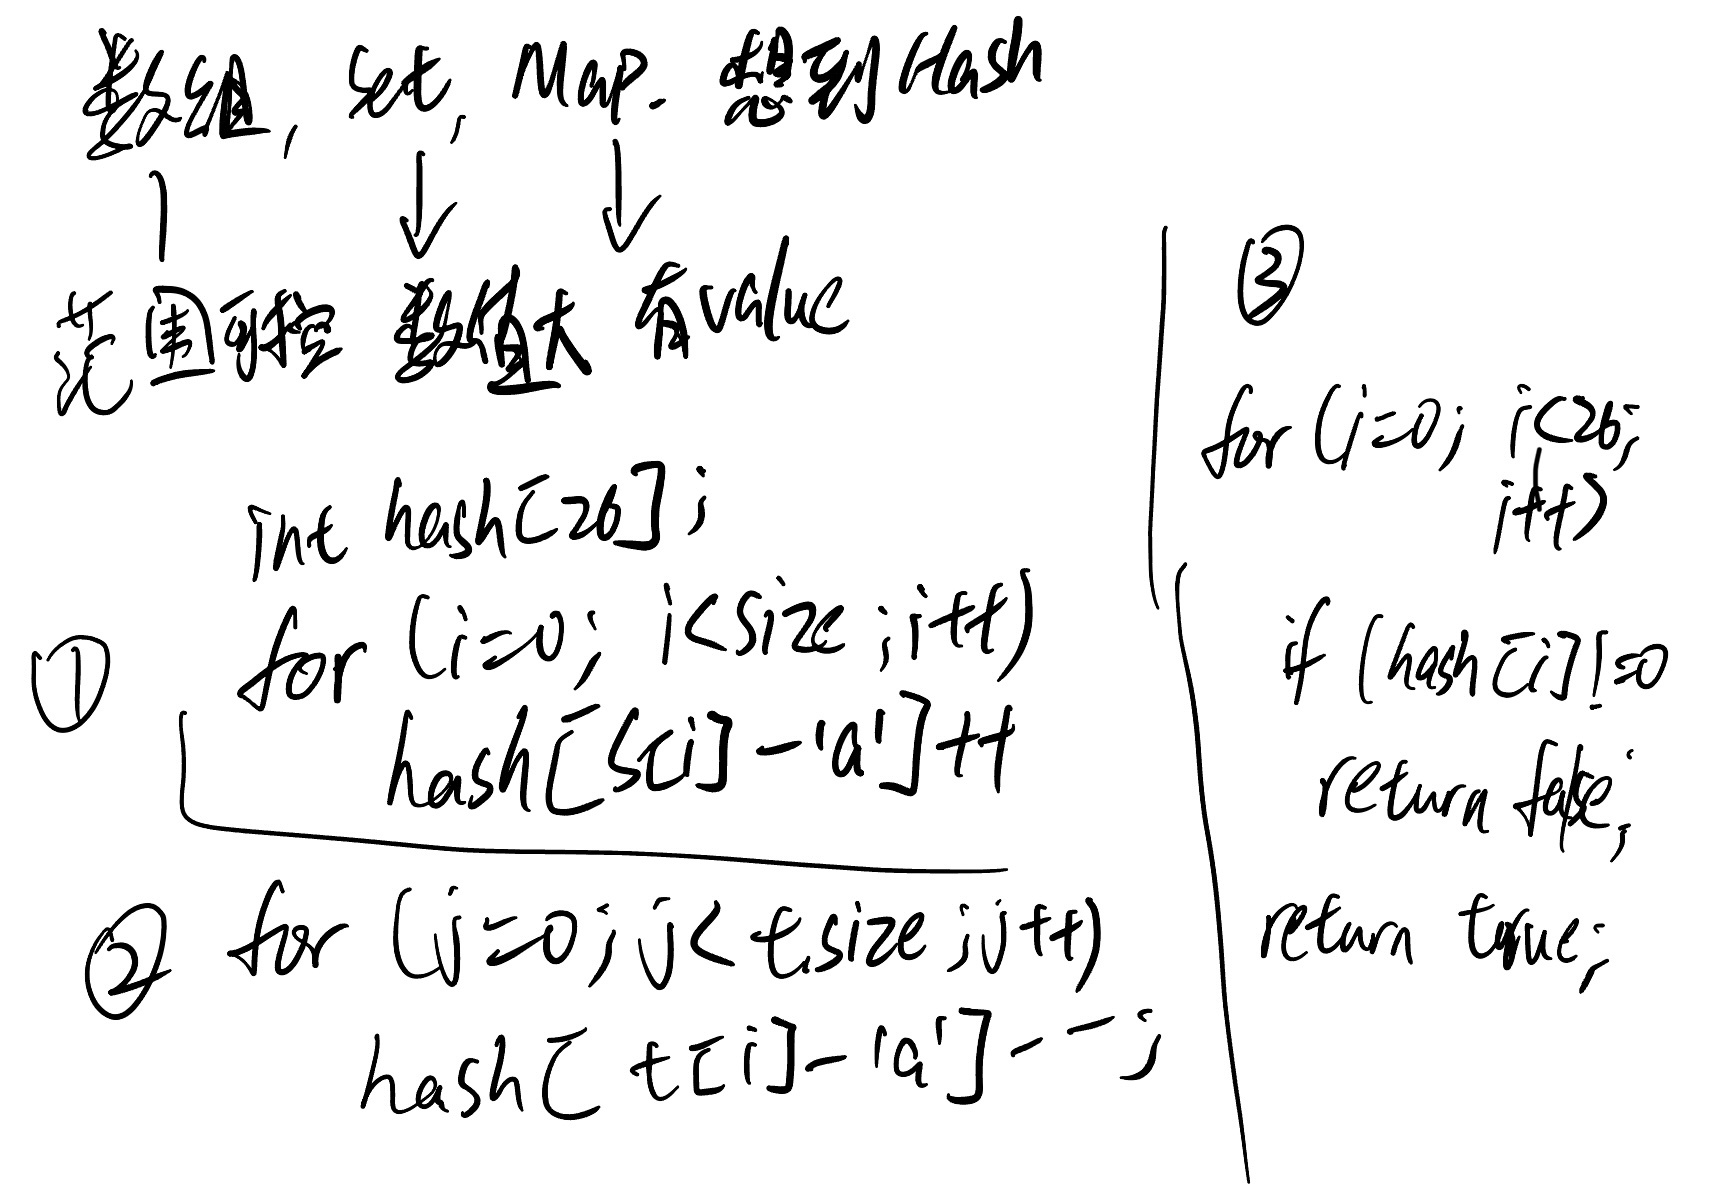 数组, set, Map. 想到Hash
范围可控 数值大 有value
int hash[26];
① for (i=0; i<size; i++)
hash[s[i]-'a']++
② for (j=0; j<t.size; j++)
hash[t[i]-'a']--;
③
for (i=0; i<26;
i++)
if (hash[i]!=0
return false;
return true;